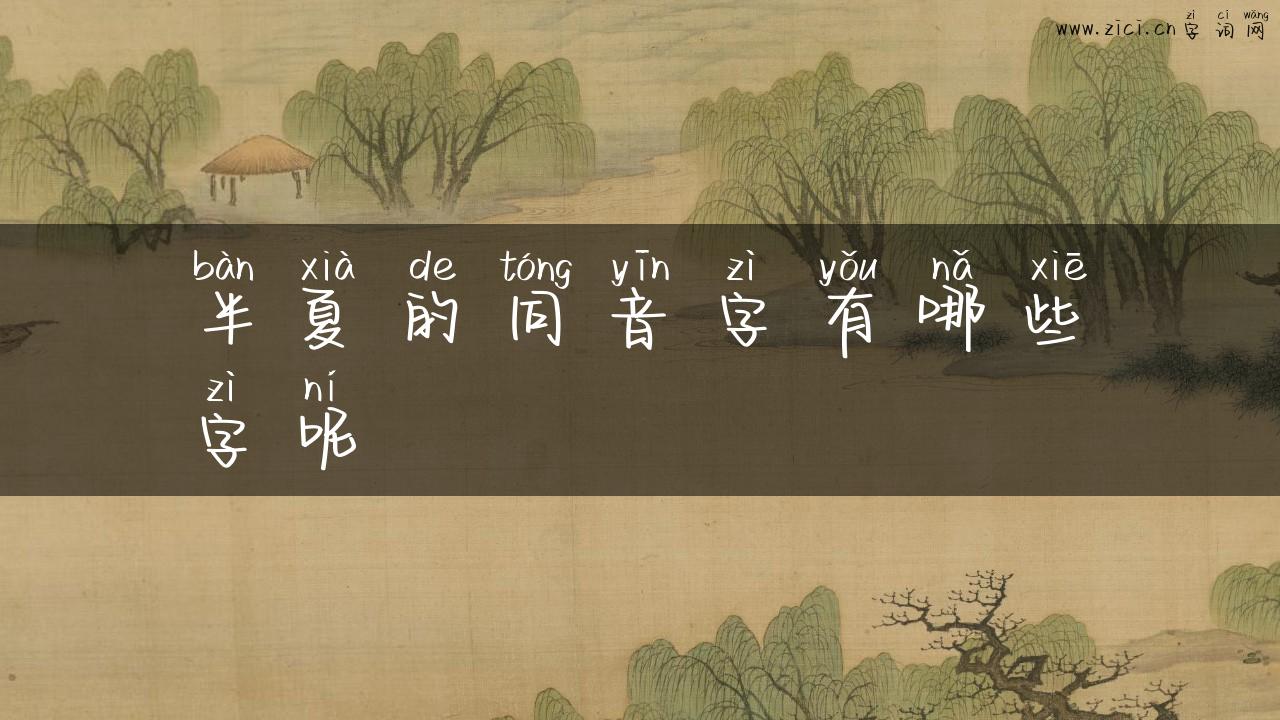 zì cí wǎng
www.zici.cn 字词网
bàn xià de tóng yīn zì yǒu nǎ xiē
半夏的同音字有哪些
zì ní
字呢